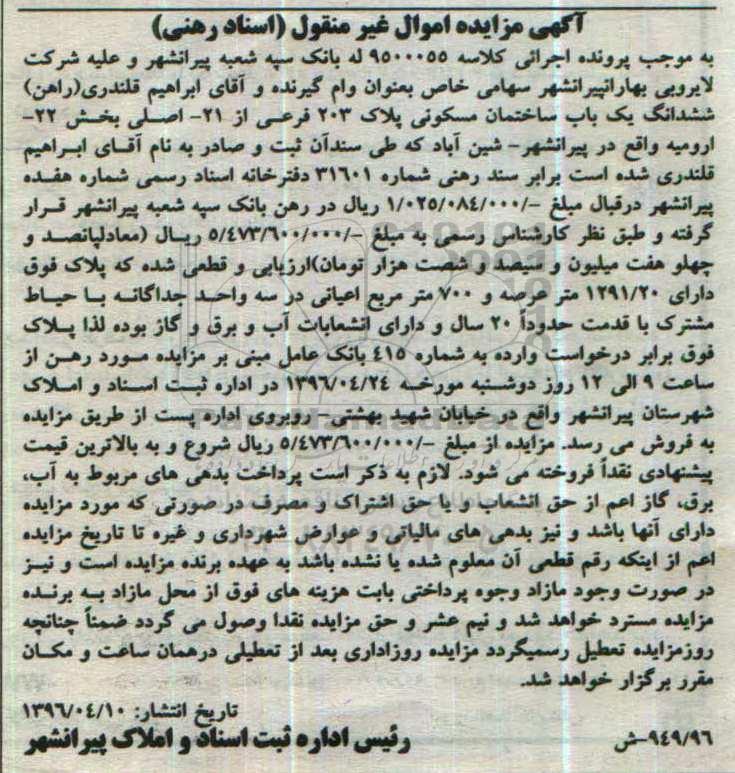 آگهی مزایده اموال غیر منقول (اسناد رهنی)
به موجب پرونده اجرائی کلاسه ۹۵۰۰۰۵۵ له بانک سپه شعبه پیرانشهر و علیه شرکت
لایروبی بهارانپیرانشهر سهامی خاص بعنوان وام گیرنده و آقای ابراهیم قلندری(راهن)
ششدانگ یک باب ساختمان مسکونی پلاک ۲۰۳ فرعی از ۲۱- اصلی بخش ۲۲-
ارومیه واقع در پیرانشهر- شین آباد که طی سندآن ثبت و صادر به نام آقای ابراهیم
قلندری شده است برابر سند رهنی شماره ۳۱۶۰۱ دفترخانه اسناد رسمی شماره هفده
پیرانشهر درقبال مبلغ -/۱/۰۲۵/۰۸۴/۰۰۰ ریال در رهن بانک سپه شعبه پیرانشهر قرار
گرفته و طبق نظر کارشناس رسمی به مبلغ -/۵/۴۷۳/۶۰۰/۰۰۰ ریال (معادلپانصد و
چهلو هفت میلیون و سیصد و شصت هزار تومان)ارزیابی و قطعی شده که پلاک فوق
دارای ۱۲۹۱/۲۰ متر عرصه و ۷۰۰ متر مربع اعیانی در سه واحد جداگانه با حیاط
مشترک با قدمت حدوداً ۲۰ سال و دارای انشعابات آب و برق و گاز بوده لذا پلاک
فوق برابر درخواست وارده به شماره ۴۱۵ بانک عامل مبنی بر مزایده مورد رهن از
ساعت ۹ الی ۱۲ روز دوشنبه مورخه ۱۳۹۶/۰۴/۲۴ در اداره ثبت اسناد و املاک
شهرستان پیرانشهر واقع در خیابان شهید بهشتی- روبروی اداره پست از طریق مزایده
به فروش می رسد. مزایده از مبلغ -/۵/۴۷۳/۶۰۰/۰۰۰ ریال شروع و به بالاترین قیمت
پیشنهادی نقداً فروخته می شود. لازم به ذکر است پرداخت بدهی های مربوط به آب،
برق، گاز اعم از حق انشعاب و یا حق اشتراک و مصرف در صورتی که مورد مزایده
دارای آنها باشد و نیز بدهی های مالیاتی و عوارض شهرداری و غیره تا تاریخ مزایده
اعم از اینکه رقم قطعی آن معلوم شده یا نشده باشد به عهده برنده مزایده است و نیز
در صورت وجود مازاد وجوه پرداختی بابت هزینه های فوق از محل مازاد به برنده
مزایده مسترد خواهد شد و نیم عشر و حق مزایده نقدا وصول می گردد ضمناً چنانچه
روزمزایده تعطیل رسمیگردد مزایده روزاداری بعد از تعطیلی درهمان ساعت و مکان
مقرر برگزار خواهد شد.
تاریخ انتشار: ۱۳۹۶/۰۴/۱۰
۹۴۹/۹۶-ش
رئیس اداره ثبت اسناد و املاک پیرانشهر